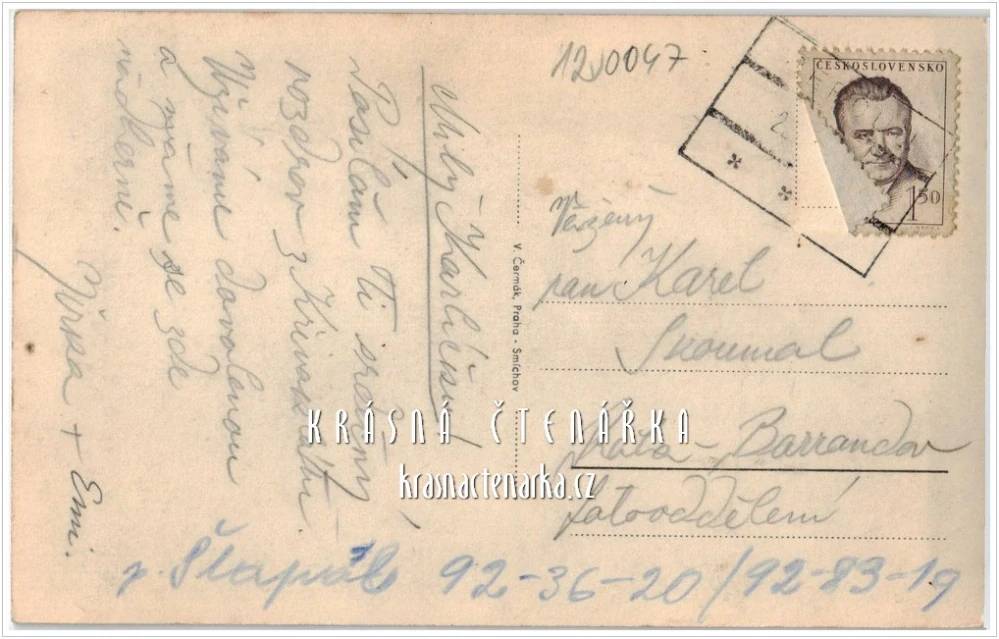 12J0047
ČESKOSLOVENSKO
1 50
Milý Karlíčku!
Posílám Ti srdečný
pozdrav z Křivoklátu.
Užíváme dovolenou
a máme se zde
nádherně.
Jiřka + Emi.
V. Čermák, Praha - Smíchov
Vážený
pan Karel
Skoumal
Praha - Barrandov
fotooddělení
KRÁSNÁ ČTENÁŘKA
krasnactenarka.cz
p. Šlapák 92-36-20/92-83-19